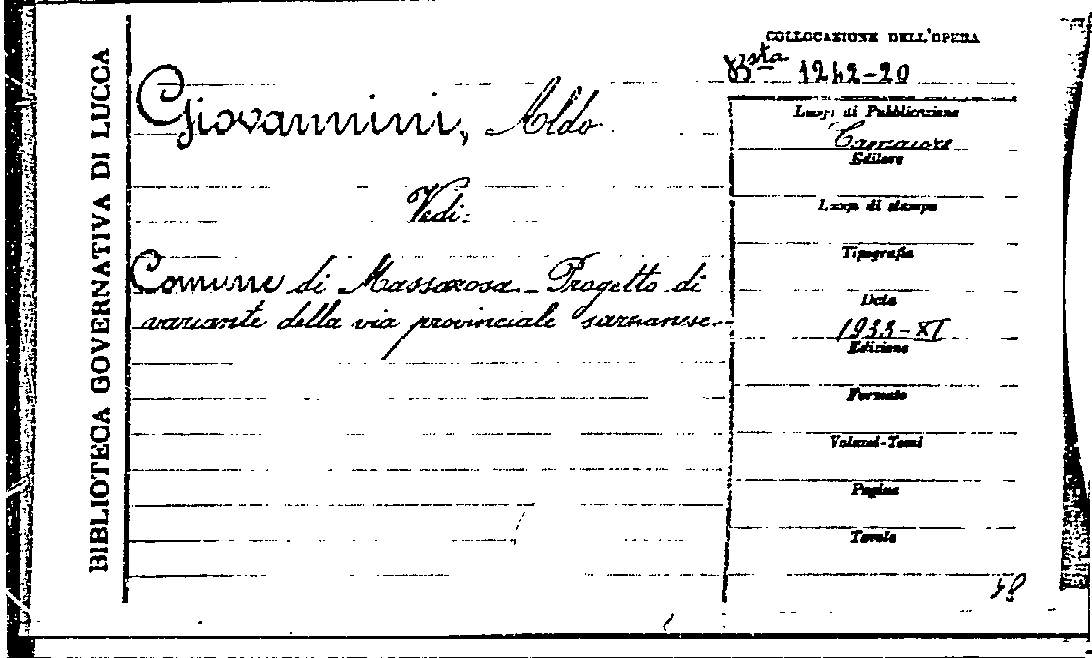 BIBLIOTECA GOVERNATIVA DI LUCCA
COLLOCAZIONE DELL'OPERA
Bsta 1242-20
Giovannini, Aldo
Vedi:
Comune di Massarosa - Progetto di
variante della via provinciale sarzanese.
Luogo di Pubblicazione
Camaiore
Editore
Luogo di stampa
Tipografia
Data
1933-XI
Edizione
Formato
Volumi-Tomi
Pagine
Tavole